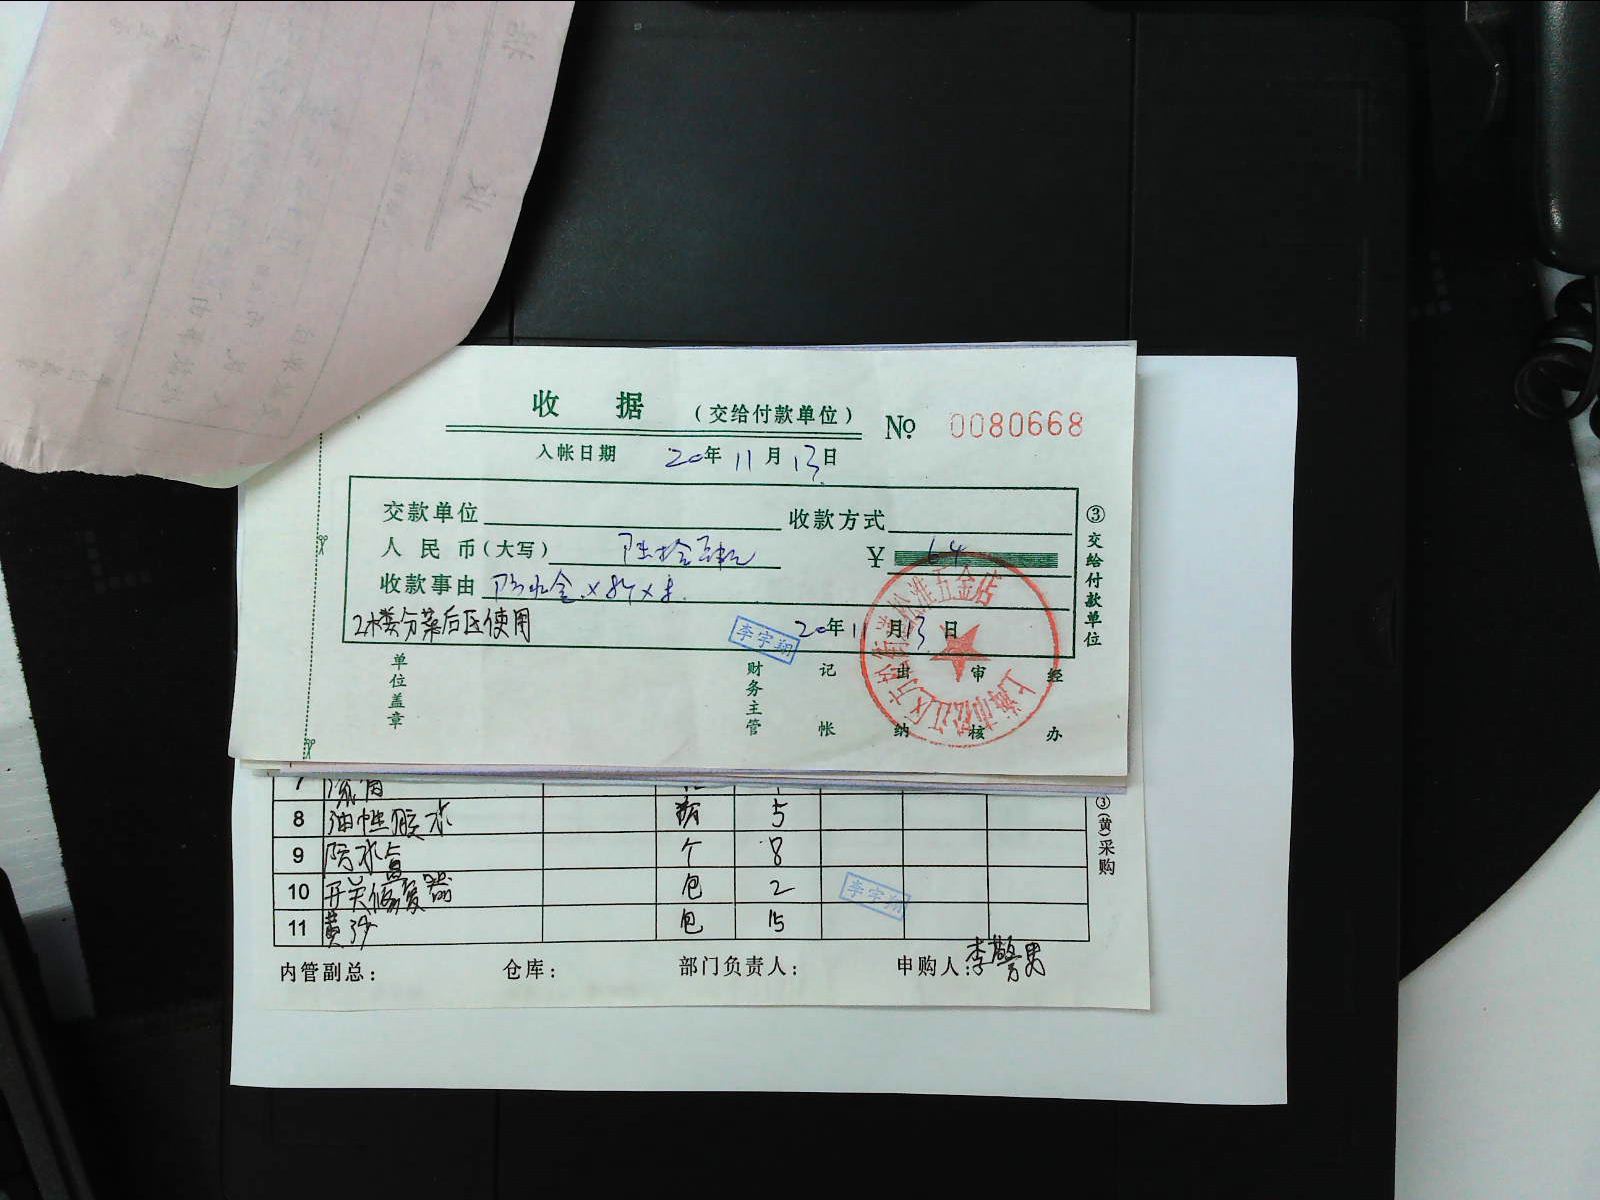 收 据 (交给付款单位) № 0080668
入帐日期 20年 11月 13日
交款单位 收款方式
人民币(大写) 陆拾肆元 ¥ 64
收款事由 防水盒×8个×8
2楼分菜后区使用 李宇翔 20年11月13日
单位盖章 财务主管 记帐 出纳 审核 经办
③交给付款单位
上海市松江区 五金店
7
8 油性胶水 瓶 5
9 防水盒 个 8
10 开关修复器 包 2 李宇翔
11 黄沙 包 15
③(黄)采购
内管副总: 仓库: 部门负责人: 申购人:李警男